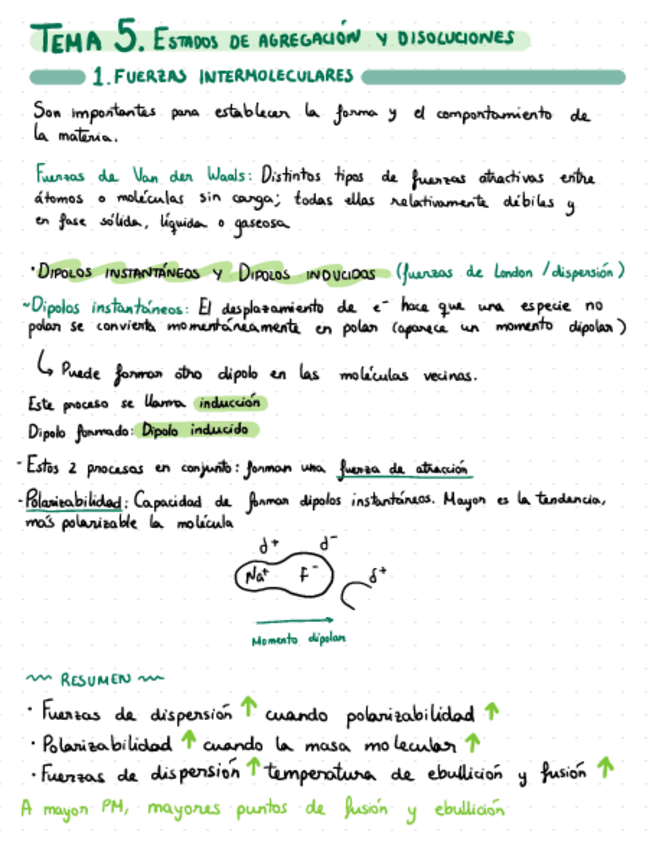 TEMA 5. ESTADOS DE AGREGACIÓN Y DISOLUCIONES
1. FUERZAS INTERMOLECULARES
Son importantes para establecer la forma y el comportamiento de
la materia.
Fuerzas de Van der Waals: Distintos tipos de fuerzas atractivas entre
átomos o moléculas sin carga; todas ellas relativamente débiles y
en fase sólida, líquida o gaseosa
· DIPOLOS INSTANTÁNEOS Y DIPOLOS INDUCIDOS (fuerzas de London / dispersión)
~Dipolos instantáneos: El desplazamiento de e⁻ hace que una especie no
polar se convierta momentáneamente en polar (aparece un momento dipolar)
↳ Puede formar otro dipolo en las moléculas vecinas.
Este proceso se llama inducción
Dipolo formado: Dipolo inducido
- Estos 2 procesos en conjunto: forman una fuerza de atracción
- Polarizabilidad: Capacidad de formar dipolos instantáneos. Mayor es la tendencia,
más polarizable la molécula
d⁺ d⁻
Na⁺ F⁻ δ⁺
Momento dipolar
~ RESUMEN ~
· Fuerzas de dispersión ↑ cuando polarizabilidad ↑
· Polarizabilidad ↑ cuando la masa molecular ↑
· Fuerzas de dispersión ↑ temperatura de ebullición y fusión ↑
A mayor PM, mayores puntos de fusión y ebullición